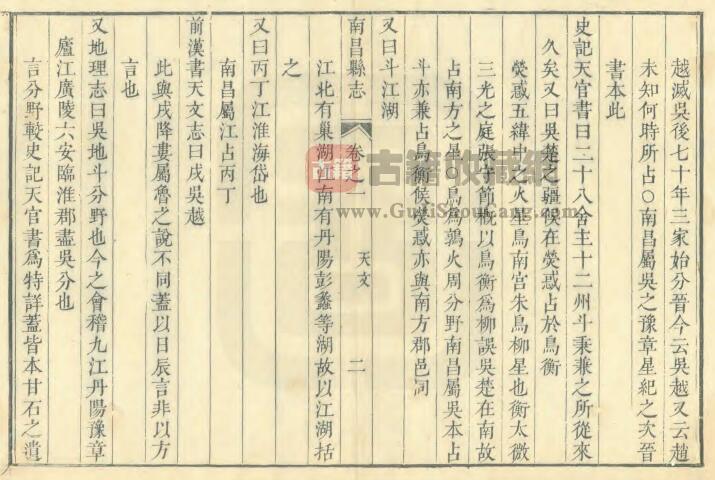 越滅吳後七十年三家始分晉今云吳越又云趙
未知何時所占○南昌屬吳之豫章星紀之次晉
書本此
史記天官書曰二十八舍主十二州斗秉兼之所從來
久矣又曰吳楚之疆候在熒惑占於鳥衡
熒惑五緯中之火星鳥南宮朱鳥柳星也衡太微
三光之庭張守節概以鳥衡為柳誤吳楚在南故
占南方之星 鳥為鶉火周分野南昌屬吳本占
斗亦兼占鳥衡候熒惑亦與南方郡邑同
又曰斗江湖
南昌縣志 卷之一 天文 二
江北有巢湖 南有丹陽彭蠡等湖故以江湖括
之
又曰丙丁江淮海岱也
南昌屬江占丙丁
前漢書天文志曰戌吳越
此與戌降婁屬魯之說不同蓋以日辰言非以方
言也
又地理志曰吳地斗分野也今之會稽九江丹陽豫章
廬江廣陵六安臨淮郡盡吳分也
言分野較史記天官書爲特詳蓋皆本甘石之遺
古籍 古籍收藏網
www.GujiShouCang.com